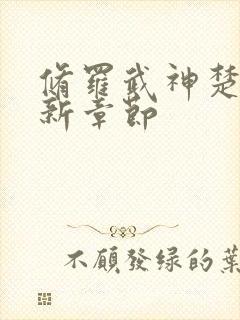 脩羅武神楚
新章節
不願發绿的葉